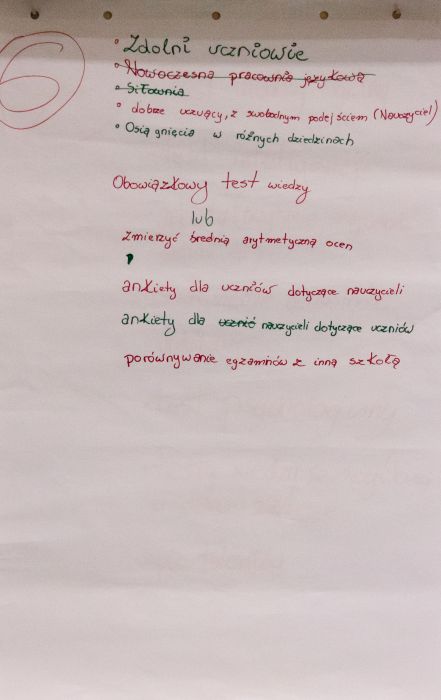 6
• Zdolni uczniowie
• Nowoczesna pracownia językowa
• Siłownia
• dobrze uczący, z swobodnym podejściem (Nauczyciel)
• Osiągnięcia w różnych dziedzinach
Obowiązkowy test wiedzy
lub
zmierzyć średnią arytmetyczną ocen
ankiety dla uczniów dotyczące nauczycieli
ankiety dla ucznió nauczycieli dotyczące uczniów
porównywanie egzaminów z inną szkołą